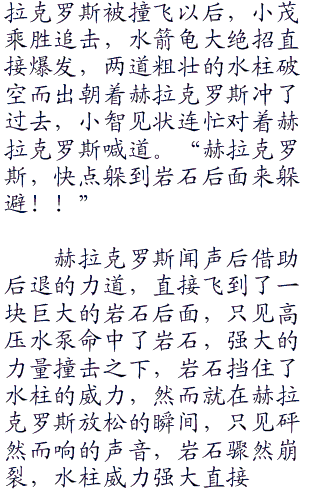 拉克罗斯被撞飞以后，小茂
乘胜追击，水箭龟大绝招直
接爆发，两道粗壮的水柱破
空而出朝着赫拉克罗斯冲了
过去，小智见状连忙对着赫
拉克罗斯喊道。“赫拉克罗
斯，快点躲到岩石后面来躲
避！！”
赫拉克罗斯闻声后借助
后退的力道，直接飞到了一
块巨大的岩石后面，只见高
压水泵命中了岩石，强大的
力量撞击之下，岩石挡住了
水柱的威力，然而就在赫拉
克罗斯放松的瞬间，只见砰
然而响的声音，岩石骤然崩
裂，水柱威力强大直接